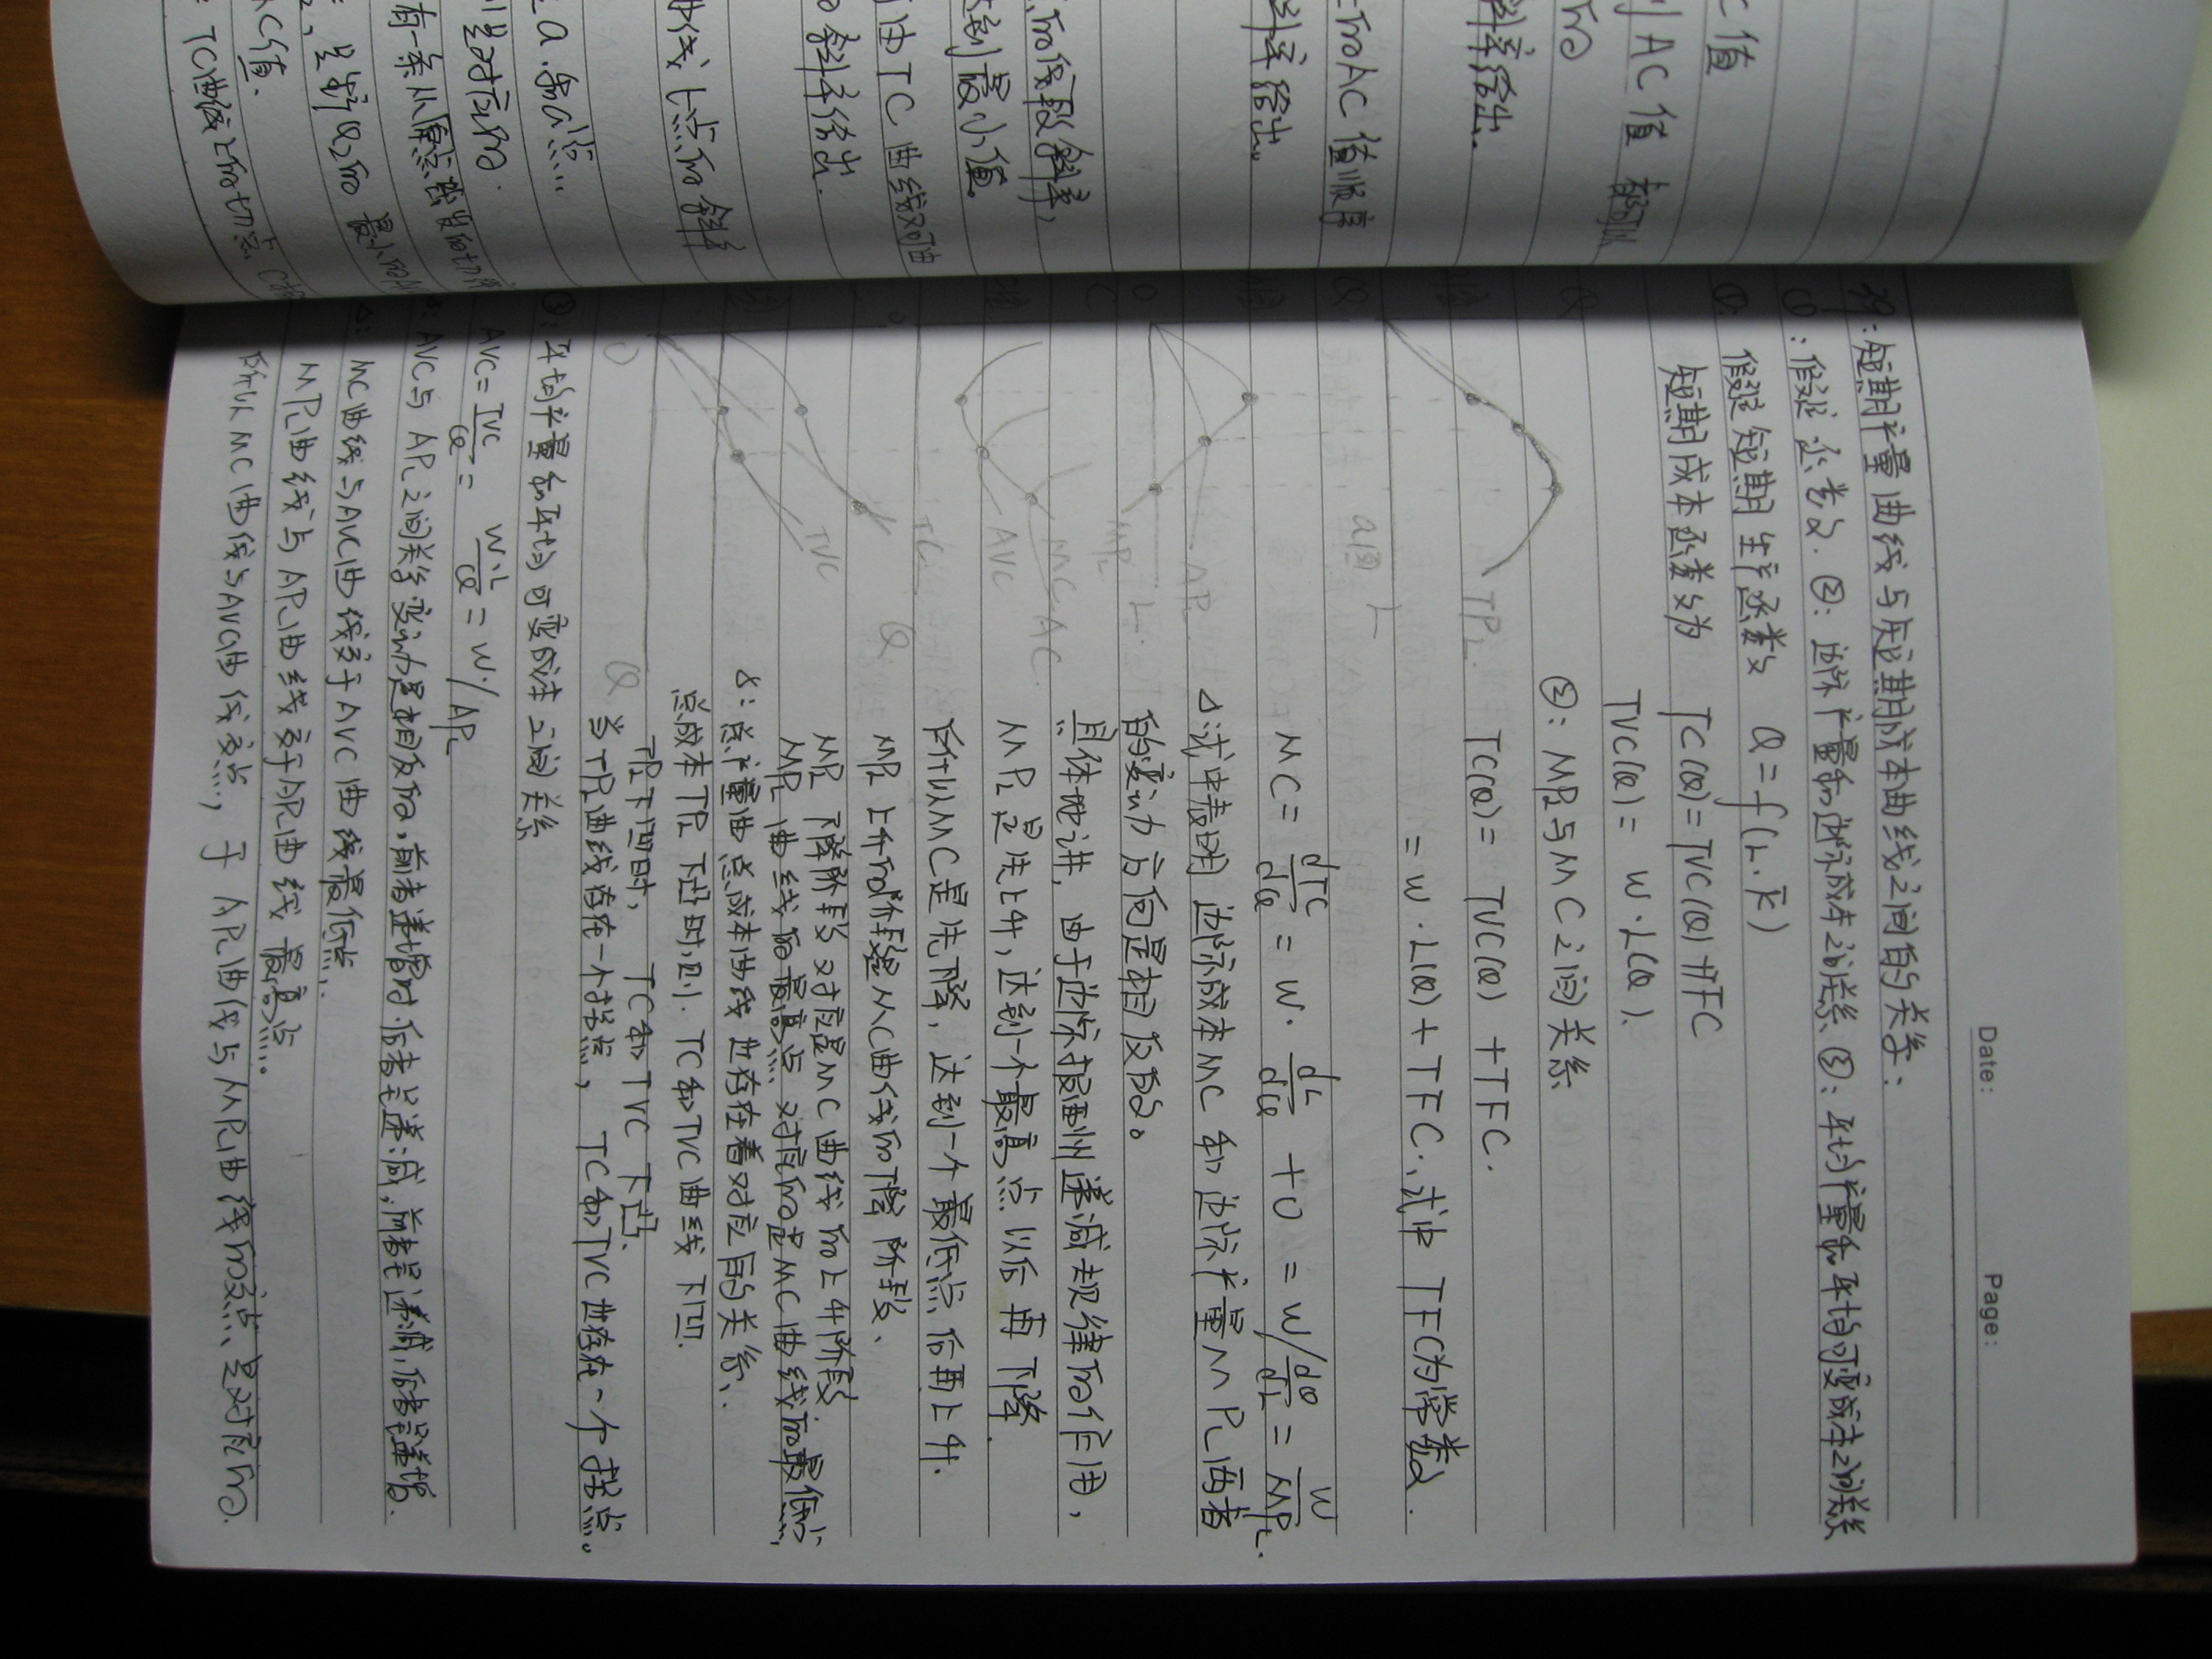 Date: Page:
39:短期产量曲线与短期成本曲线之间的关系:
①:假设函数. ②:边际产量和边际成本之间关系. ③:平均产量和平均可变成本之间关系
①: 假设短期生产函数 Q=f(L.K̄)
短期成本函数为 TC(Q)=TVC(Q)+TFC
TVC(Q)= W·L(Q).
②: MPL与MC之间关系
TC(Q)= TVC(Q) +TFC.
= W·L(Q)+TFC. 式中 TFC为常数.
MC= dTC/dQ = W· dL/dQ +0 = W/ dQ/dL = W/MPL.
△:式中表明 边际成本MC 和边际产量MPL两者
的变动方向是相反的。
具体地讲, 由于边际报酬递减规律的作用,
MPL是先上升, 达到一个最高点以后再下降.
所以MC是先下降, 达到一个最低点后再上升.
MPL上升的阶段是MC曲线的下降阶段、
MPL下降阶段对应是MC曲线的上升阶段
MPL曲线的最高点对应的是MC曲线的最低点,
γ:总产量曲 总成本曲线也存在着对应的关系、
总成本TPL下凸时,则.TC和TVC曲线下凹.
TPL下凹时, TC和TVC下凸.
当TPL曲线存在一个拐点, TC和TVC也存在一个拐点。
③:平均产量和平均可变成本之间关系
AVC= TVC/Q = W·L/Q = W·/APL
AVC与APL之间关系变动是相反的,前者递增时.后者是递减;前者是递减,后者是递增.
△: MC曲线与AVC曲线交于AVC曲线最低点.
MPL曲线与APL曲线交于APL曲线最高点..
所以MC曲线与AVC曲线交点, 于APL曲线与MPL曲线的交点、是对应的.
TPL
L
a图
APL
MPL
L
C
MC
AC
AVC
Q
TC
TVC
Q
O
C值
AC值
斜率给出.
的AC值顺序
斜率给出。
的线段斜率,
达到最小值。
由TC曲线
的斜率给出.
曲线上点的斜率
有一条从原点出发的切线
AC值.
TC曲线上的切点